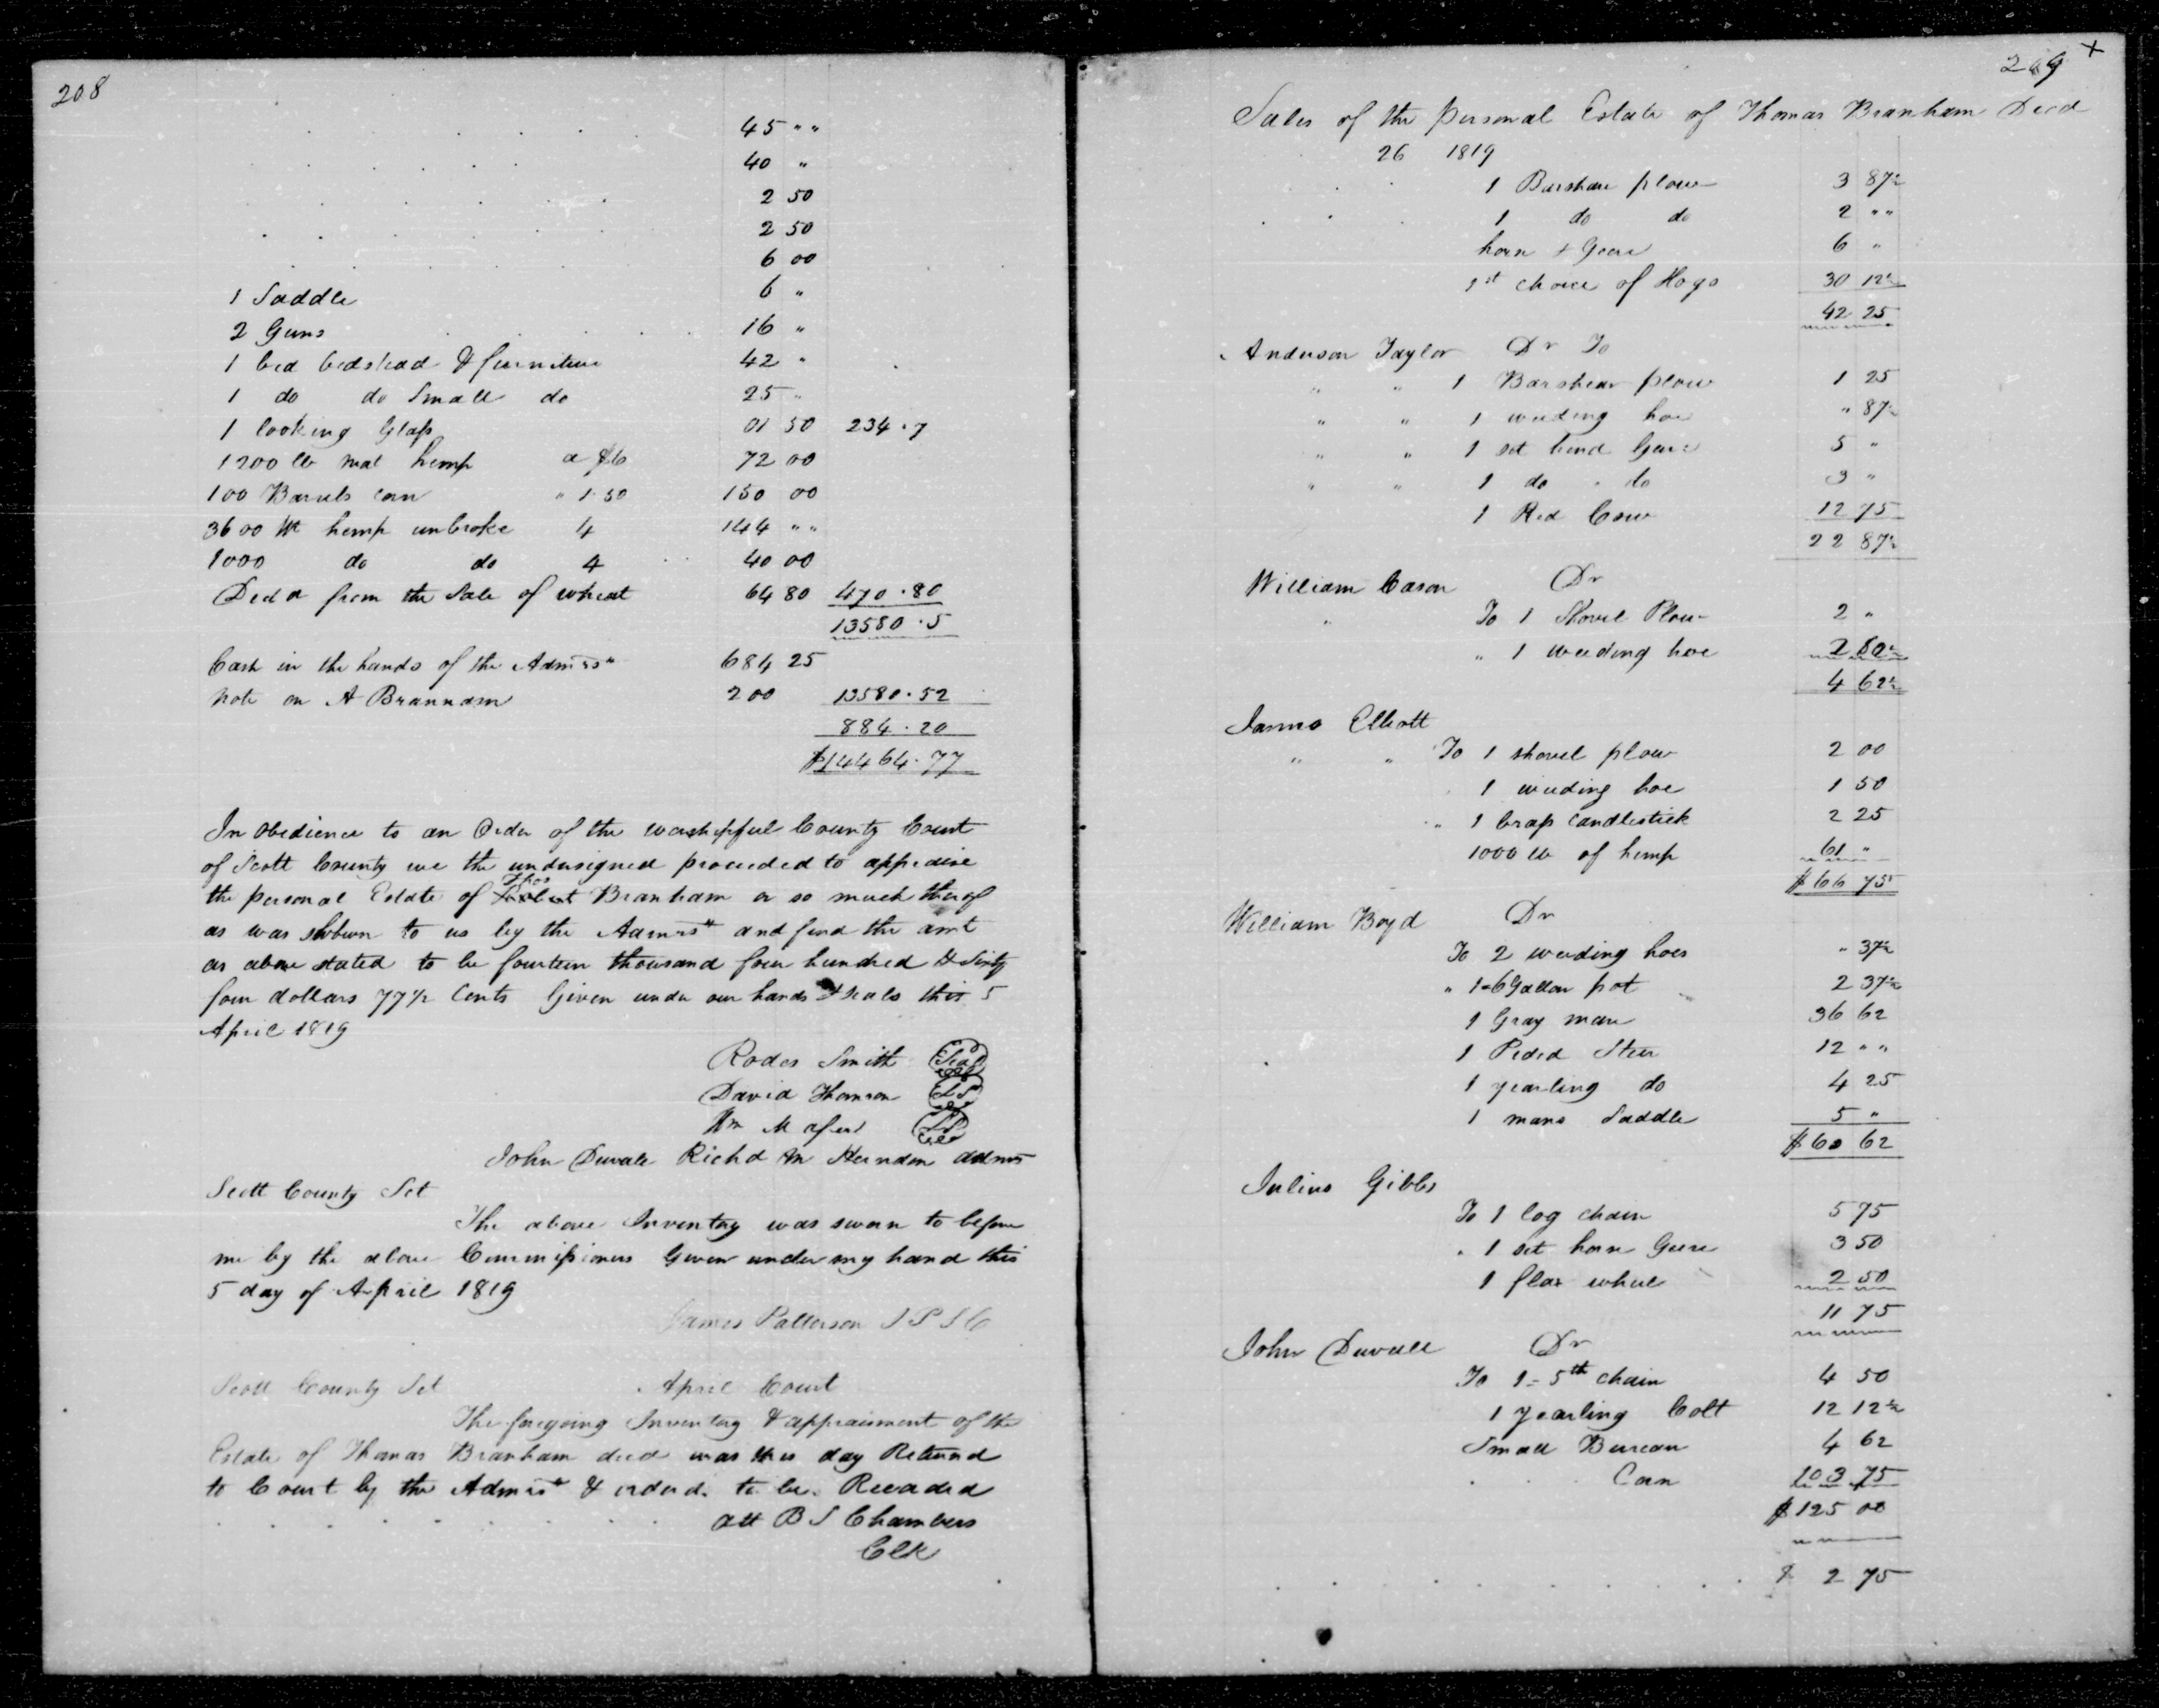 208
45 " "
40 "
2 50
2 50
6 00
1 Saddle 6 "
2 Guns 16 "
1 bed bedstead & furniture 42 "
1 do do Small do 25 "
1 looking Glass 01 50 234 . 7
1200 lb mat hemp a $6 72 00
100 Barrels corn " 1.50 150 00
3600 Wt hemp unbroke 4 144 " "
1000 do do 4 40 00
Ded a from the Sale of wheat 64 80 470 . 80
13580 . 5
Cash in the hands of the Admrs " 684 25
note on A Brannam 200 13580 . 52
884 . 20
$14464 . 77
In obedience to an Order of the worshipful County Court
of Scott County we the undersigned proceeded to appraise
the personal Estate of Thos Branham or so much therof
as was shown to us by the Admrs and find the amt
as above stated to be fourteen thousand four hundred & Sixty
four dollars 77 1/2 Cents Given under our hands & seals this 5
April 1819
Rodes Smith Seal
David Thomson LS
Wm M LS
John Duvall Richd M Herndon admrs
Scott County Sct
The above Inventory was sworn to before
me by the above Commissioners Given under my hand this
5 day of April 1819
James Patterson J P S C
Scott County Sct April Court
The foregoing Inventory & appraisment of the
Estate of Thomas Branham decd was this day Returnd
to Court by the Admrs & orderd to be Recorded
att B S Chambers
Clk
209 x
Sales of the personal Estate of Thomas Branham Decd
26 1819
1 Barshare plow 3 87 1/2
1 do do 2 " "
horse & Geare 6 "
1st choice of Hogs 30 12 1/2
42 25
Anderson Taylor Dr To
" " 1 Barshear plow 1 25
" " 1 weeding hoe " 87 1/2
" " 1 set hind Geare 5 "
" " 1 do " do 3 "
1 Red Cow 12 75
22 87 1/2
William Cason Dr
" To 1 Shovel Plow 2 "
" 1 weeding hoe 2 62 1/2
4 62 1/2
James Elliott
" " To 1 shovel plow 2 00
1 weeding hoe 1 50
" 1 brass candlestick 2 25
1000 lb of hemp 61 "
$ 66 75
William Boyd Dr
To 2 weeding hoes " 37 1/2
" 1 = 6 Gallon pot 2 37 1/2
1 Gray mare 36 62
1 Pided Steer 12 " "
1 yearling do 4 25
1 mans Saddle 5 "
$ 60 62
Julius Gibbs
To 1 log chain 5 75
" 1 set horse Geere 3 50
1 flax wheel 2 50
11 75
John Duvall Dr
To 1 = 5th chain 4 50
1 yearling Colt 12 12 1/2
Small Bureau 4 62
Corn 103 75
$ 125 00
$ 2 75